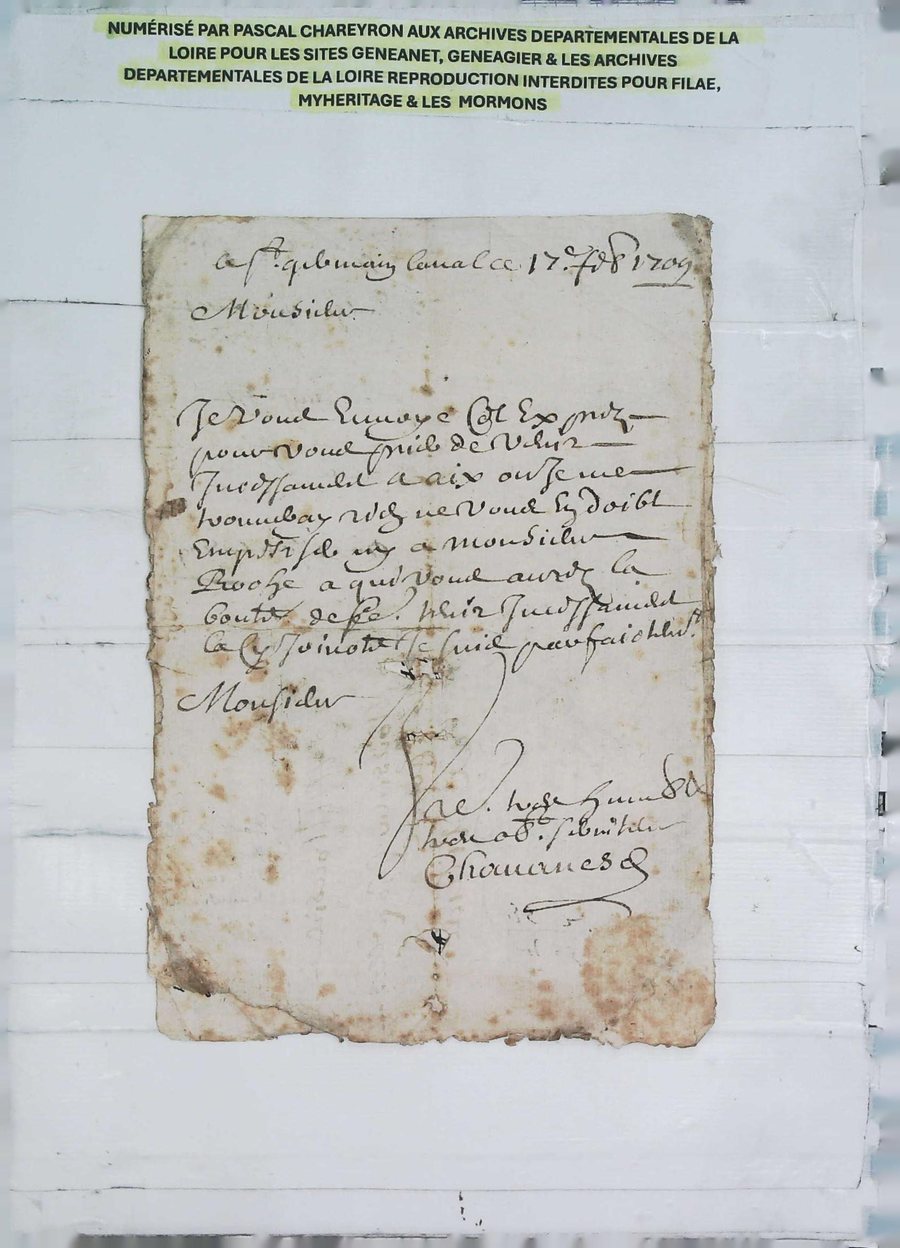 NUMÉRISÉ PAR PASCAL CHAREYRON AUX ARCHIVES DEPARTEMENTALES DE LA
LOIRE POUR LES SITES GENEANET, GENEAGIER & LES ARCHIVES
DEPARTEMENTALES DE LA LOIRE REPRODUCTION INTERDITES POUR FILAE,
MYHERITAGE & LES MORMONS
a St. germain laual ce 17e. 1709
Monsieur
Je vous Enuoye Cet Exprez
pour vous prier de venir
Incessament a aix ou Je me
trouueray rien ne vous En doibt
a monsieur
Roche a qui vous aurez la
bonté de tenir Incessament
la cy Jointe Je suis parfaictemt.
Monsieur
Vre. tres humble
tres ob. seruiteur
Chauanes